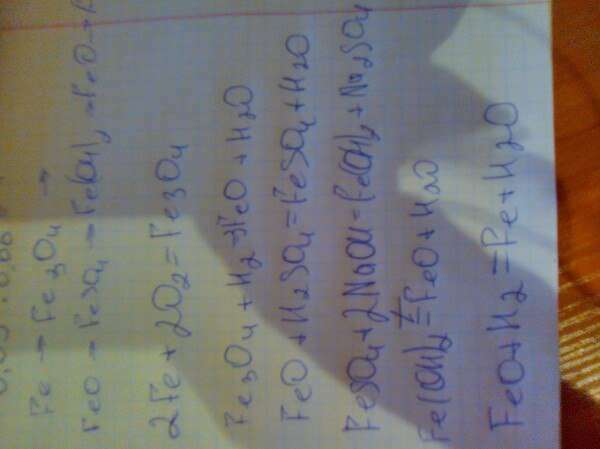 Fe → Fe₃O₄ →
FeO → FeSO₄ → Fe(OH)₂ → FeO →
2Fe + 2O₂ = Fe₃O₄
Fe₃O₄ + H₂ → 3FeO + H₂O
FeO + H₂SO₄ = FeSO₄ + H₂O
FeSO₄ + 2NaOH = Fe(OH)₂ + Na₂SO₄
Fe(OH)₂ =ᵗ FeO + H₂O
FeO + H₂ = Fe + H₂O